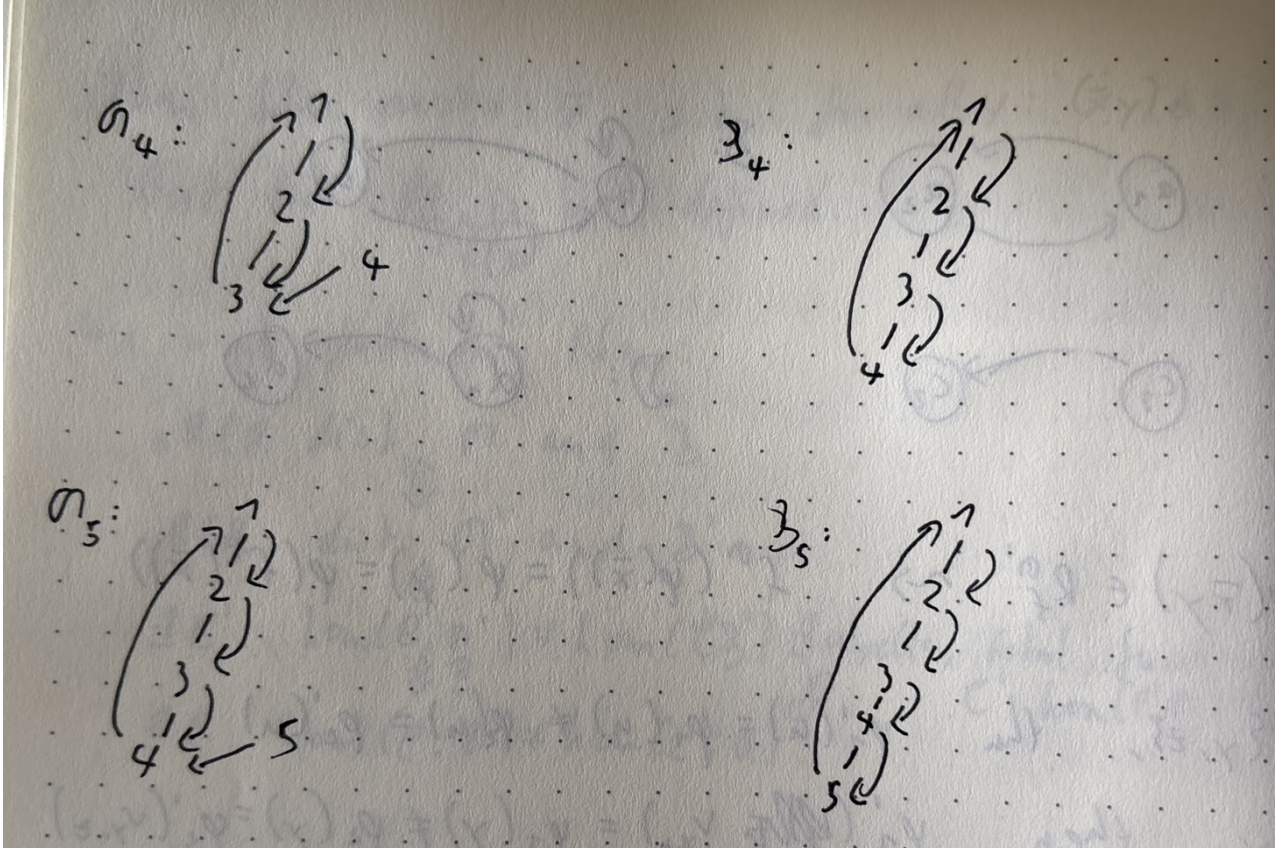 𝔄₄:
1
2
3
4
𝔅₄:
1
2
3
4
𝔄₅:
1
2
3
4
5
𝔅₅:
1
2
3
4
5